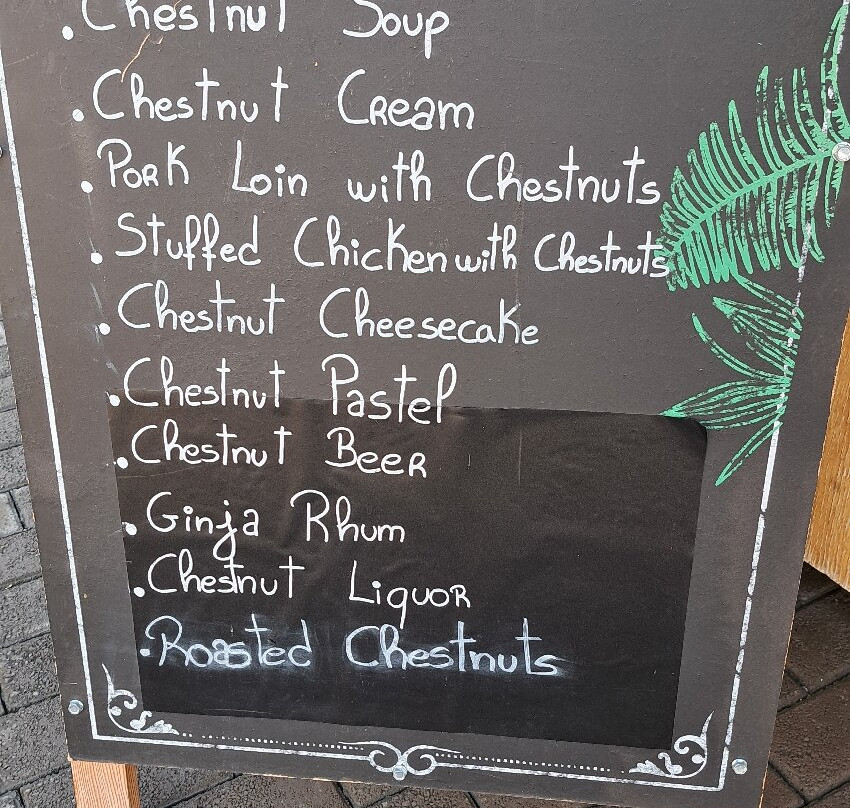 . Chestnut Soup
. Chestnut Cream
. Pork Loin with Chestnuts
. Stuffed Chicken with Chestnuts
. Chestnut Cheesecake
. Chestnut Pastel
. Chestnut Beer
. Ginja Rhum
. Chestnut Liquor
. Roasted Chestnuts